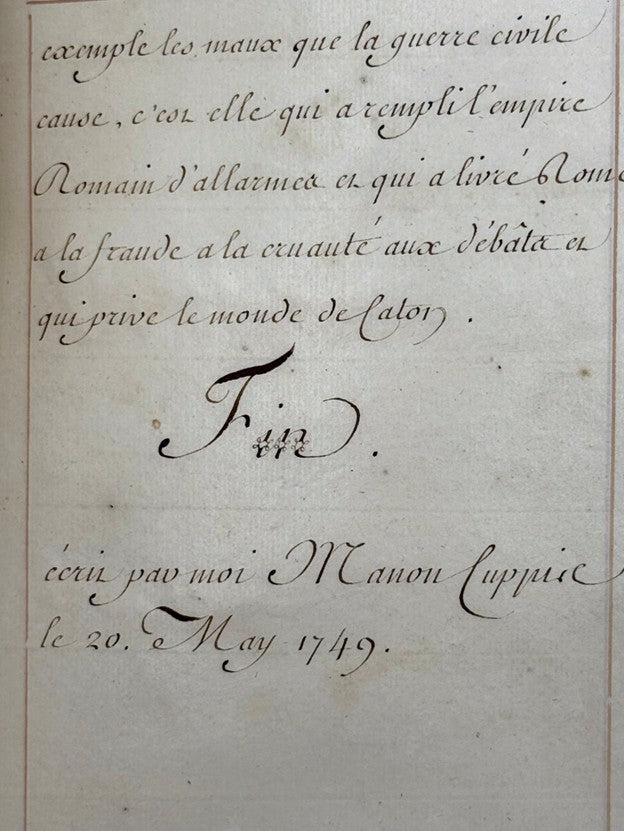 exemple les maux que la guerre civile
cause, c'est elle qui a rempli l'empire
Romain d'allarmes et qui a livré Rome
a la fraude a la cruauté aux débâts et
qui prive le monde de Caton.
Fin.
écrit par moi Manon
le 20. May 1749.